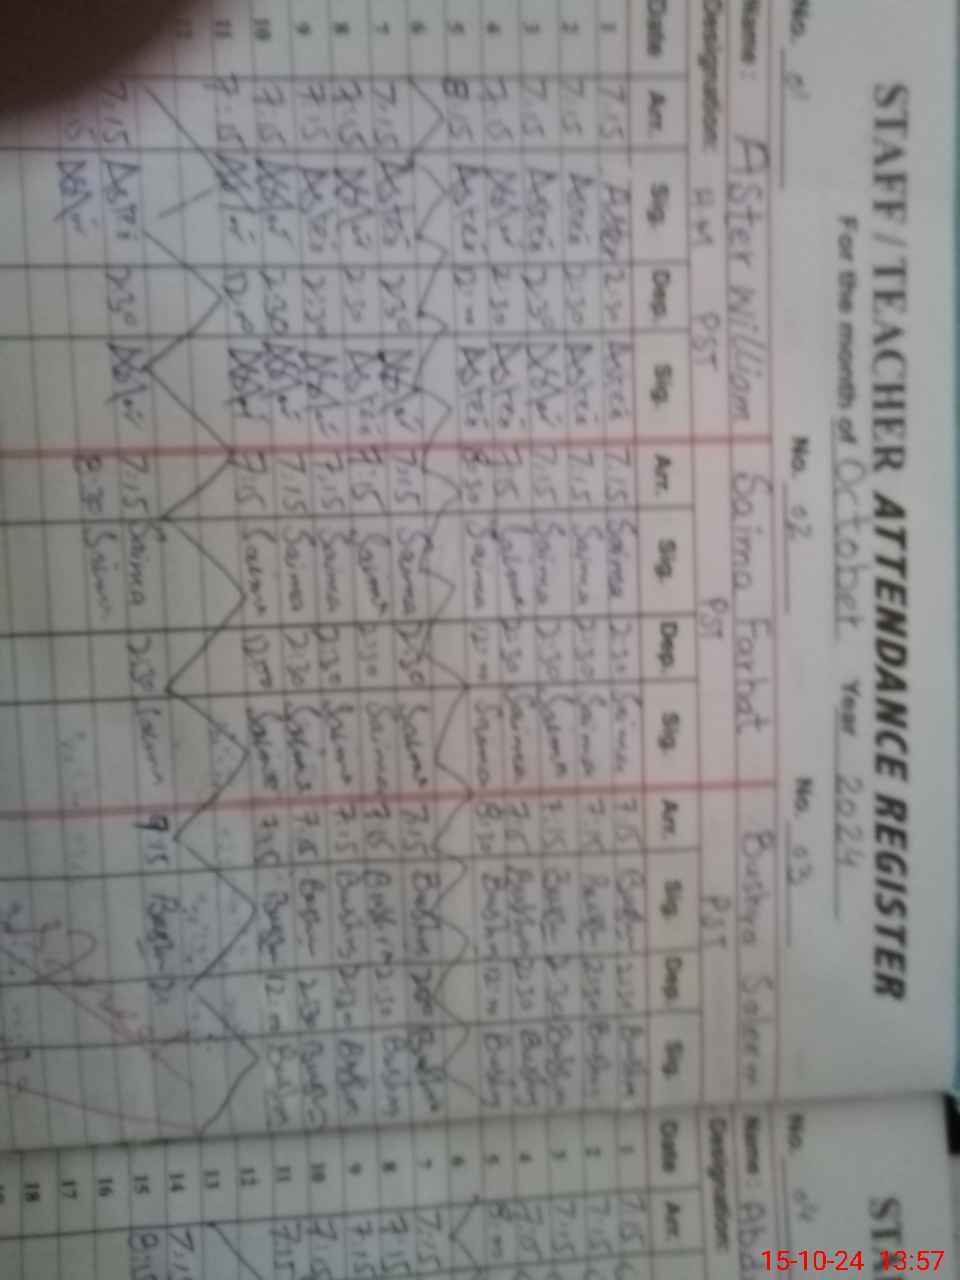 STAFF / TEACHER ATTENDANCE REGISTER
For the month of October Year 2024
No. 01 No. 02 No. 03
Name: Aster William Saima Farhat Bushra Saleem
Designation: HM PST PST PST
Date Arr. Sig. Dep. Sig. Arr. Sig. Dep. Sig. Arr. Sig. Dep. Sig.
1 7.15 Aster 2:30 Aster 7.15 Saima 2:30 Saima 7.15 Bushra 2:30 Bushra
2 7.15 Aster 2:30 Aster 7.15 Saima 2:30 Saima 7.15 Bushra 2:30 Bushra
3 7.15 Aster 2:30 Aster 7.15 Saima 2:30 Saima 7.15 Bushra 2:30 Bushra
4 7.15 Aster 2:30 Aster 7.15 Saima 2:30 Saima 7.15 Bushra 2:30 Bushra
5 8.15 Aster 12:00 Aster 8:30 Saima 12:00 Saima 8:30 Bushra 12:00 Bushra
6
7 7.15 Aster 2:30 Aster 7.15 Saima 2:30 Saima 7.15 Bushra Bushra
8 7.15 Aster 2:30 Aster 7.15 Saima 2:30 Saima 7.15 Bushra 2:30 Bushra
9 7.15 Aster 2:30 Aster 7.15 Saima 2:30 Saima 7.15 Bushra 2:30 Bushra
10 7.15 Aster 2:30 Aster 7.15 Saima 2:30 Saima 7.15 Bushra 2:30 Bushra
11 7.15 Aster 12:00 Aster 7.15 Saima 12:00 Saima 7.15 Bushra 12:00 Bushra
12
7.15 Aster 2:30 Aster 7.15 Saima 2:30 Saima 7.15 Bushra
Aster 8:30 Saima
ST
No. 04
Name: Abd
Designation:
Date Arr.
1 7.15
2 7.15
3 7.15
4 7.15
5
6
7 7.15
8 7.15
9 7.15
10 7.15
11 7.15
12
13
14 7.1
15 8.1
16
17
18
15-10-24 13:57